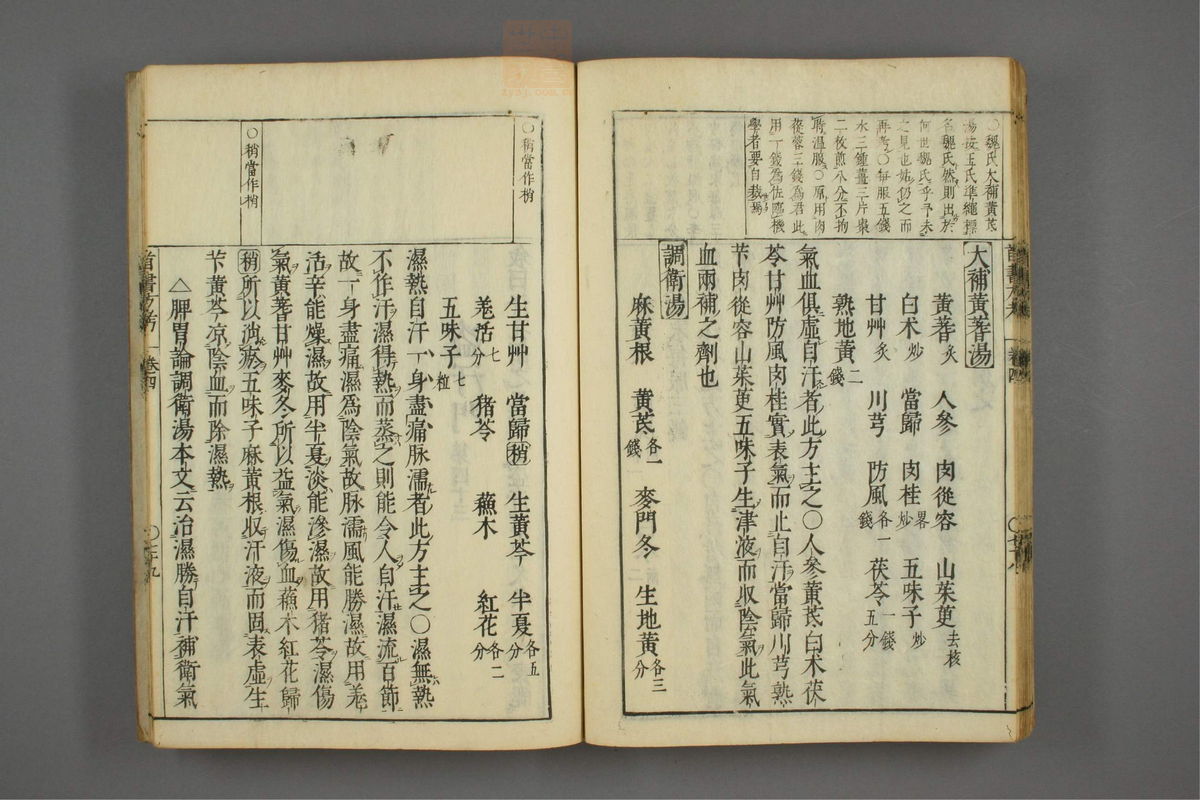 ○魏氏大補黃芪
湯按王氏準繩標
名魏氏然則出於
何世魏氏乎予未
之見也姑仍之而
再考○每服五錢
水三鍾薑三片棗
二枚煎八分不拘
時溫服○原用肉
從蓉三錢為君此
用一錢為佐臨機
學者要自裁焉
大補黃蓍湯
黃蓍炙 人參 肉從容 山茱萸去核
白朮炒 當歸 肉桂畧炒 五味子炒
甘艸炙 川芎 防風各一錢 茯苓一錢五分
熟地黃二錢
氣血俱虛自汗者此方主之○人參黃芪白朮茯
苓甘艸防風肉桂實表氣而止自汗當歸川芎熟
苄肉從容山茱萸五味子生津液而収陰氣此氣
血兩補之劑也
調衛湯
麻黃根 黃芪各一錢 麥門冬 生地黃各三分
首書方考 卷四
○稍當作梢
○稍當作梢
生甘艸 當歸稍 生黃芩 半夏各五分
羗活七分 猪苓 蘓木 紅花各二分
五味子七粒
濕熱自汗一身盡痛脉濡者此方主之○濕無熱
不作汗濕得熱而蒸之則能令人自汗濕流百節
故一身盡痛濕為陰氣故脉濡風能勝濕故用羗
活辛能燥濕故用半夏淡能滲濕故用猪苓濕傷
氣黃蓍甘艸麥冬所以益氣濕傷血蘓木紅花歸
稍所以消瘀五味子麻黃根収汗液而固表虛生
苄黃芩凉陰血而除濕熱
△脾胃論調衛湯本文云治濕勝自汗補衛氣
首書方考 卷四